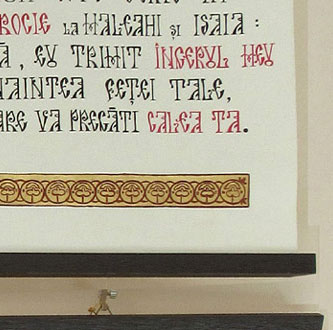 ROCIE la MALEAHI și ISAIA :
Ă, EU TRIMIT ÎNGERUL MEU
NAINTEA FEȚEI TALE,
ARE VA PREGĂTI CALEA TA.